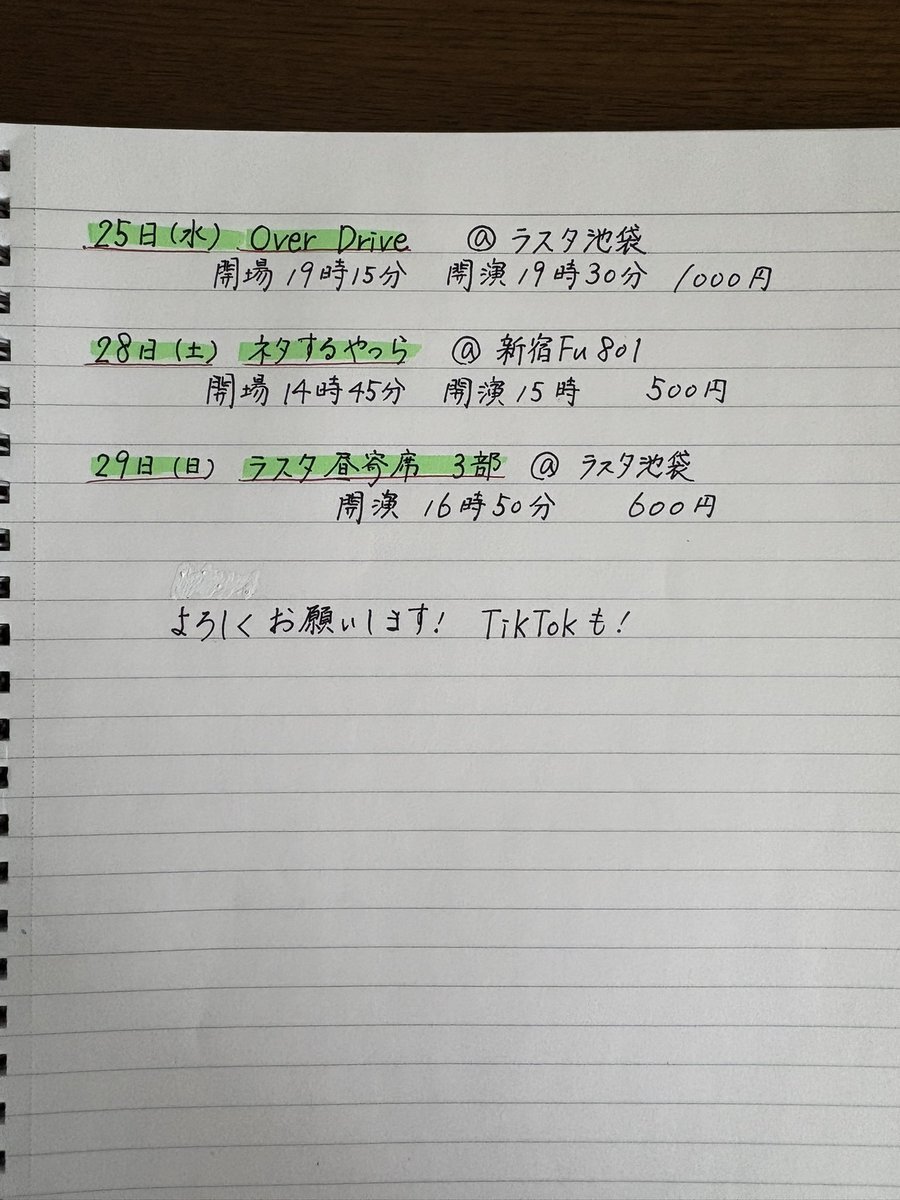 25日(水) Over Drive @ ラスタ池袋
開場19時15分 開演19時30分 1000円
28日(土) ネタするやつら @ 新宿Fu801
開場14時45分 開演15時 500円
29日(日) ラスタ昼寄席 3部 @ ラスタ池袋
開演 16時50分 600円
よろしくお願いします! TikTokも!